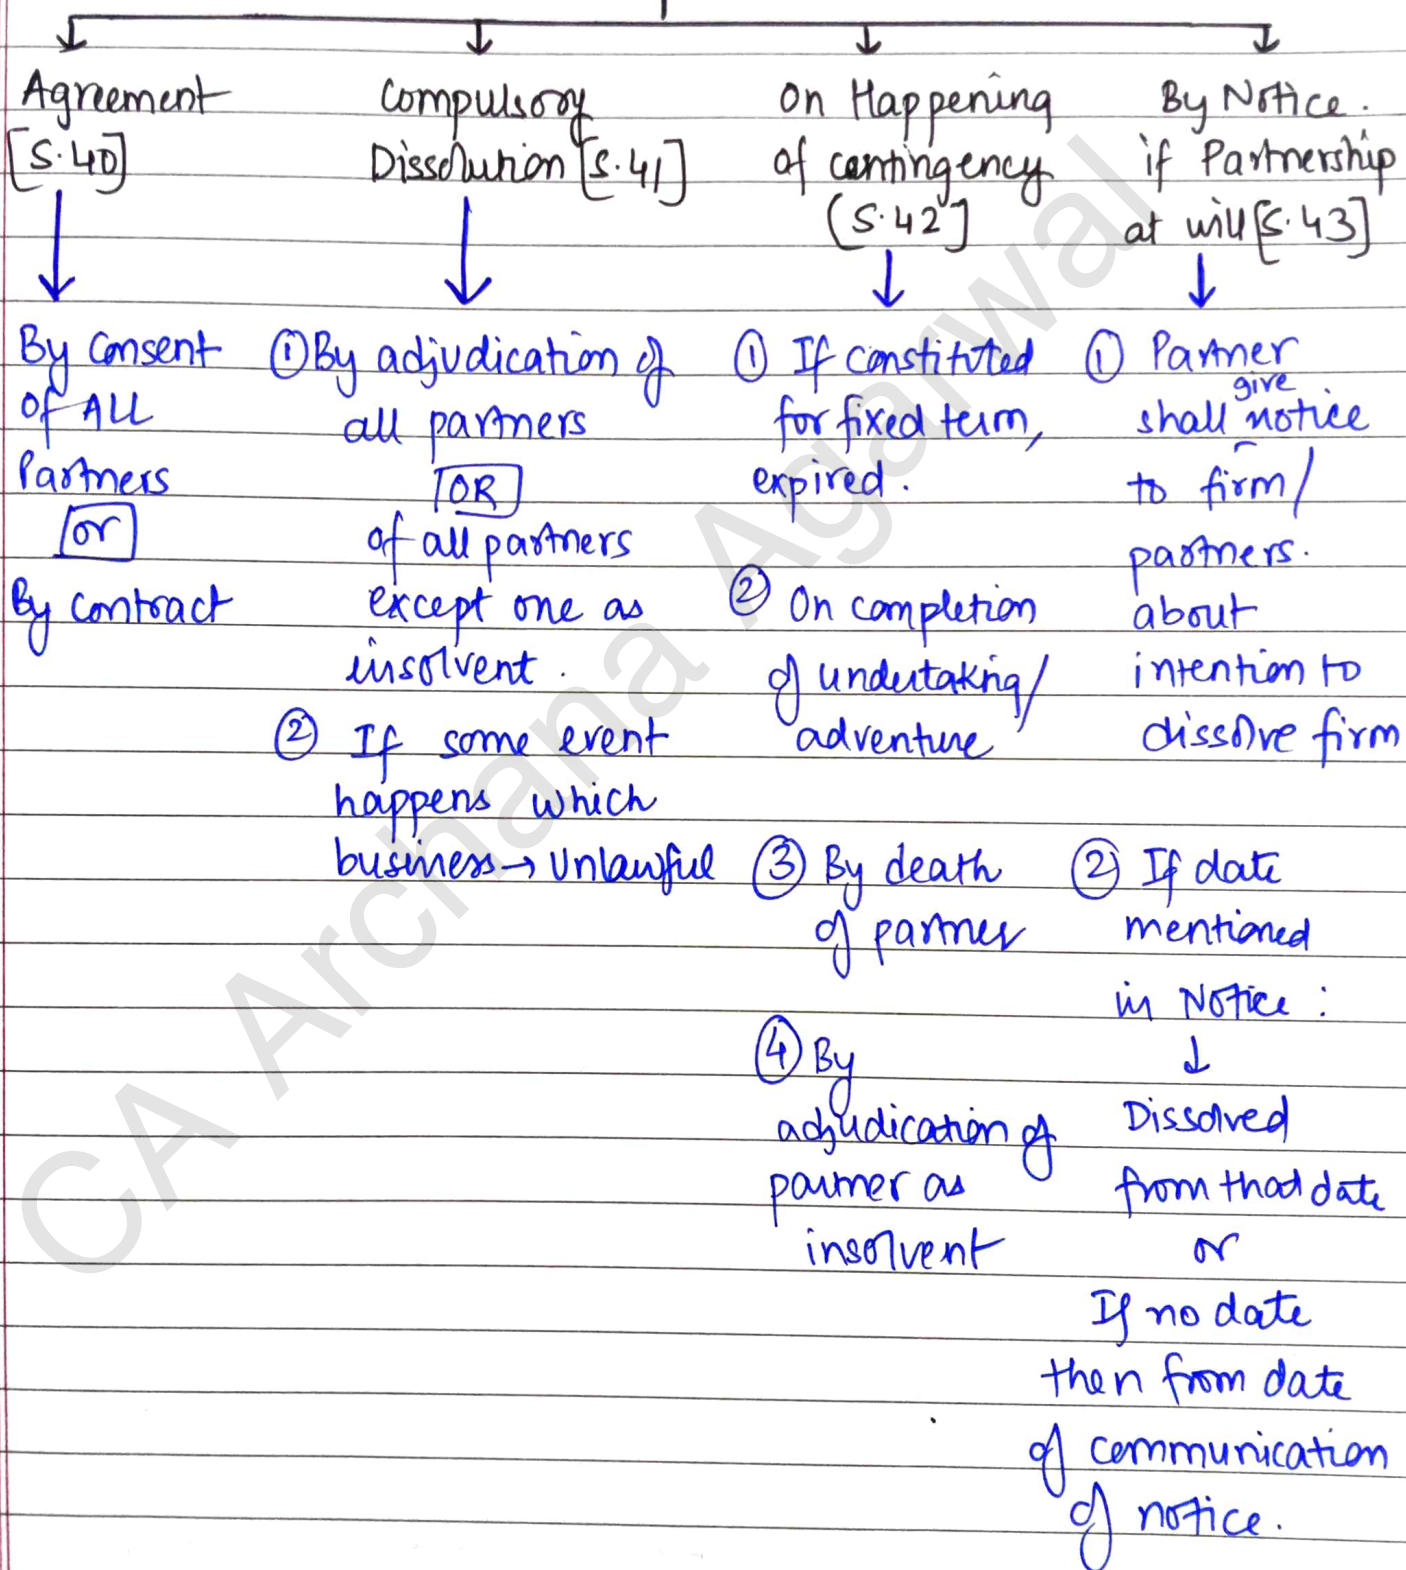 Agreement
[S.40]
By Consent
of ALL
Partners
or
By contract
Compulsory
Dissolution [S.41]
① By adjudication of
all partners
OR
of all partners
except one as
insolvent.
② If some event
happens which
business → Unlawful
On Happening
of contingency
[S.42]
① If constituted
for fixed term,
expired.
② On completion
of undertaking/
adventure
③ By death
of partner
④ By
adjudication of
partner as
insolvent
By Notice.
if Partnership
at will [S.43]
① Partner
shall give notice
to firm/
partners.
about
intention to
dissolve firm
② If date
mentioned
in Notice :
↓
Dissolved
from that date
or
If no date
then from date
of communication
of notice.
CA Archana Agarwal